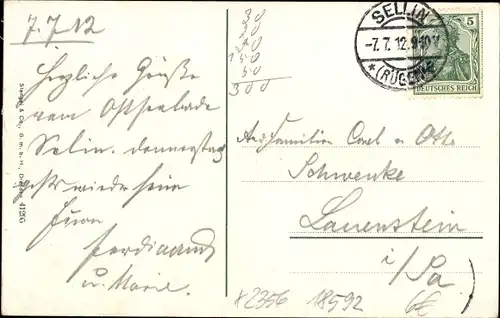 7.7.12
Herzliche Grüße
vom Ostseebade
Selin. Donnerstag
wieder heim
Ferdinand
u. Marie
30
20
150
50
300
SELLIN
-7.7.12.9-10V
*(RÜGEN)*
5
DEUTSCHES REICH
An Familien Carl u Otto
Schwenke
Lauenstein
i/Sa
Stengel & Co., G. m. b. H., Dresden 41263
x2356 18592 6€